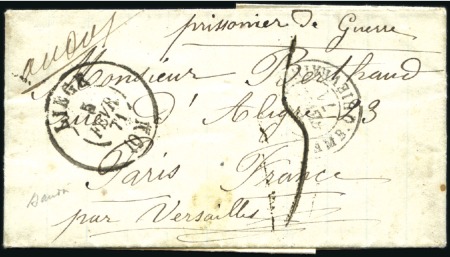 prisonnier de Guerre
LIEGE
5
FEVR
71
Monsieur Berthaud
Rue d'Aligre 23
Paris France
par Versailles
5